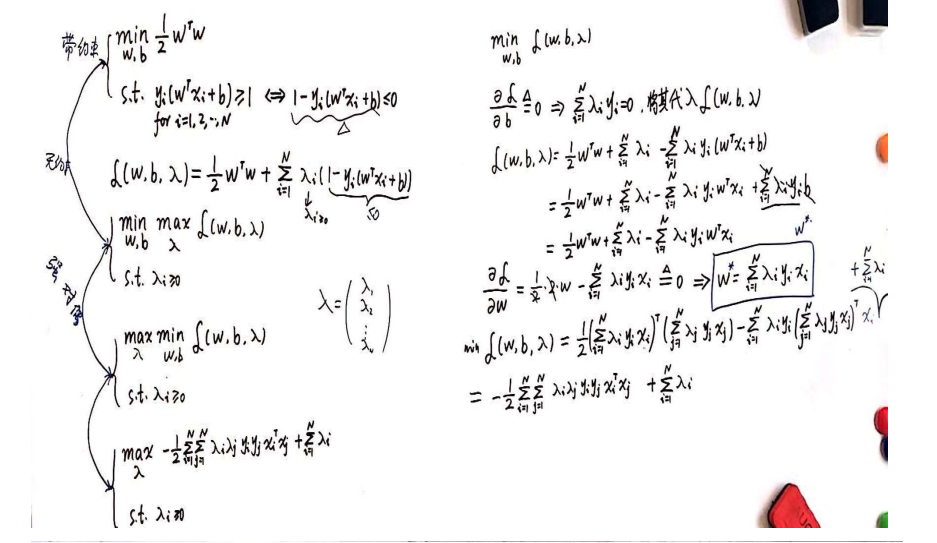 带约束
min 1/2 wᵀw
w,b
s.t. yᵢ(wᵀxᵢ+b)≥1 ⇔ 1-yᵢ(wᵀxᵢ+b)≤0
for i=1,2,…,N
△
无约束
L(w,b,λ)=1/2 wᵀw + Σᵢ₌₁ᴺ λᵢ(1-yᵢ(wᵀxᵢ+b))
λᵢ≥0
≤0
min max L(w,b,λ)
w,b λ
s.t. λᵢ≥0
强对偶
λ=(λ₁ λ₂ ⋮ λ
max min L(w,b,λ)
λ w,b
s.t. λᵢ≥0
max -1/2 Σᵢ₌₁ᴺ Σⱼ₌₁ᴺ λᵢλⱼyᵢyⱼxᵢᵀxⱼ + Σᵢ₌₁ᴺ λᵢ
λ
s.t. λᵢ≥0
min L(w,b,λ)
w,b
∂L/∂b ≜ 0 ⇒ Σᵢ₌₁ᴺ λᵢyᵢ=0, 将其代入 L(w,b,λ)
L(w,b,λ)= 1/2 wᵀw + Σᵢ₌₁ᴺ λᵢ - Σᵢ₌₁ᴺ λᵢyᵢ(wᵀxᵢ+b)
= 1/2 wᵀw + Σᵢ₌₁ᴺ λᵢ - Σᵢ₌₁ᴺ λᵢyᵢwᵀxᵢ + Σᵢ₌₁ᴺ λᵢyᵢb
= 1/2 wᵀw + Σᵢ₌₁ᴺ λᵢ - Σᵢ₌₁ᴺ λᵢyᵢwᵀxᵢ
w*
∂L/∂w = 1/2·2·w - Σᵢ₌₁ᴺ λᵢyᵢxᵢ ≜ 0 ⇒ w*= Σᵢ₌₁ᴺ λᵢyᵢxᵢ
+ Σᵢ₌₁ᴺ λᵢ
min L(w,b,λ) = 1/2(Σᵢ₌₁ᴺ λᵢyᵢxᵢ)ᵀ(Σⱼ₌₁ᴺ λⱼyⱼxⱼ) - Σᵢ₌₁ᴺ λᵢyᵢ(Σⱼ₌₁ᴺ λⱼyⱼxⱼ)ᵀxᵢ
= -1/2 Σᵢ₌₁ᴺ Σⱼ₌₁ᴺ λᵢλⱼyᵢyⱼxᵢᵀxⱼ + Σᵢ₌₁ᴺ λᵢ